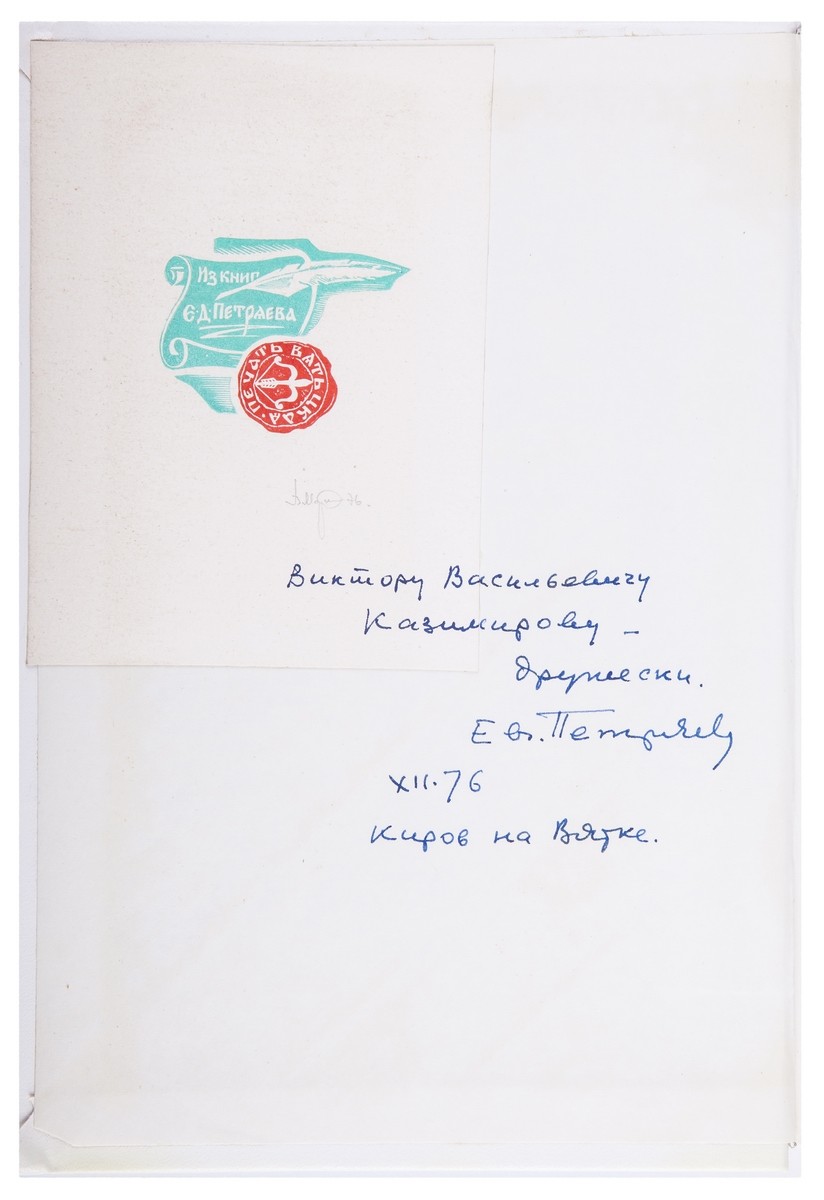 Из книг
Е.Д. Петряева
ПЕЧАТЬ ВАТЬЦКАА
76.
Виктору Васильевичу
Казимирову –
дружески.
Евг. Петряев
XII.76
Киров на Вятке.